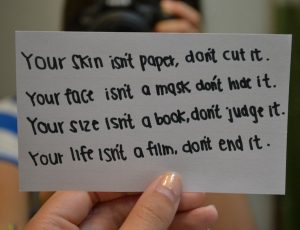 Your skin isn't paper, don't cut it.
Your face isn't a mask don't hide it.
Your size isn't a book, don't judge it.
Your life isn't a film, don't end it.